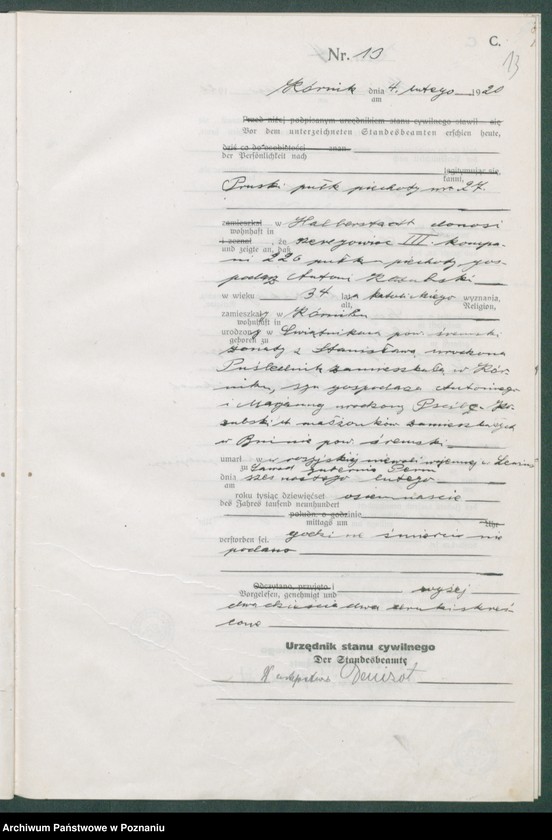 C.
Nr. 13
13
Kórnik dnia 4. lutego 1920
am
Przed niżej podpisanym urzędnikiem stanu cywilnego stawił się
Vor dem unterzeichneten Standesbeamten erschien heute,
dziś co do osobistości znan
der Persönlichkeit nach
legitymując się,
kannt,
Pruski pułk piechoty nr. 27.
zamieszkał w Halberstadt donosi
wohnhaft in
i zeznał , że szeregowiec III. kompa-
und zeigte an, daß
ni 226 pułku piechoty gos-
podarz Antoni
w wieku 34 lata katolickiego wyznania,
alt, Religion,
zamieszkały w Kórniku
wohnhaft in
urodzony w Świątnikach pow. śremski
geboren zu
żonaty z Stanisławą urodzoną
zamieszkałą w Kór-
niku, syn gospodarza Antoniego
i Magdaleny urodzonej
małżonków zamieszkałych
w Bninie pow. śremski
umarł w w rosyjskiej niewoli wojennej w
zu gubernia Perm
dnia szesnastego lutego
am
roku tysiąc dziewięćset osiemnaście
des Jahres tausend neunhundert
połudn. o godzinie
mittags um Uhr
verstorben sei. godzina śmierci nie
podano
Odczytano, przyjęto i wyżej
Vorgelesen, genehmigt und
dwadzieścia dwa druku skreś-
lono
Urzędnik stanu cywilnego
Der Standesbeamte
Archiwum Państwowe w Poznaniu